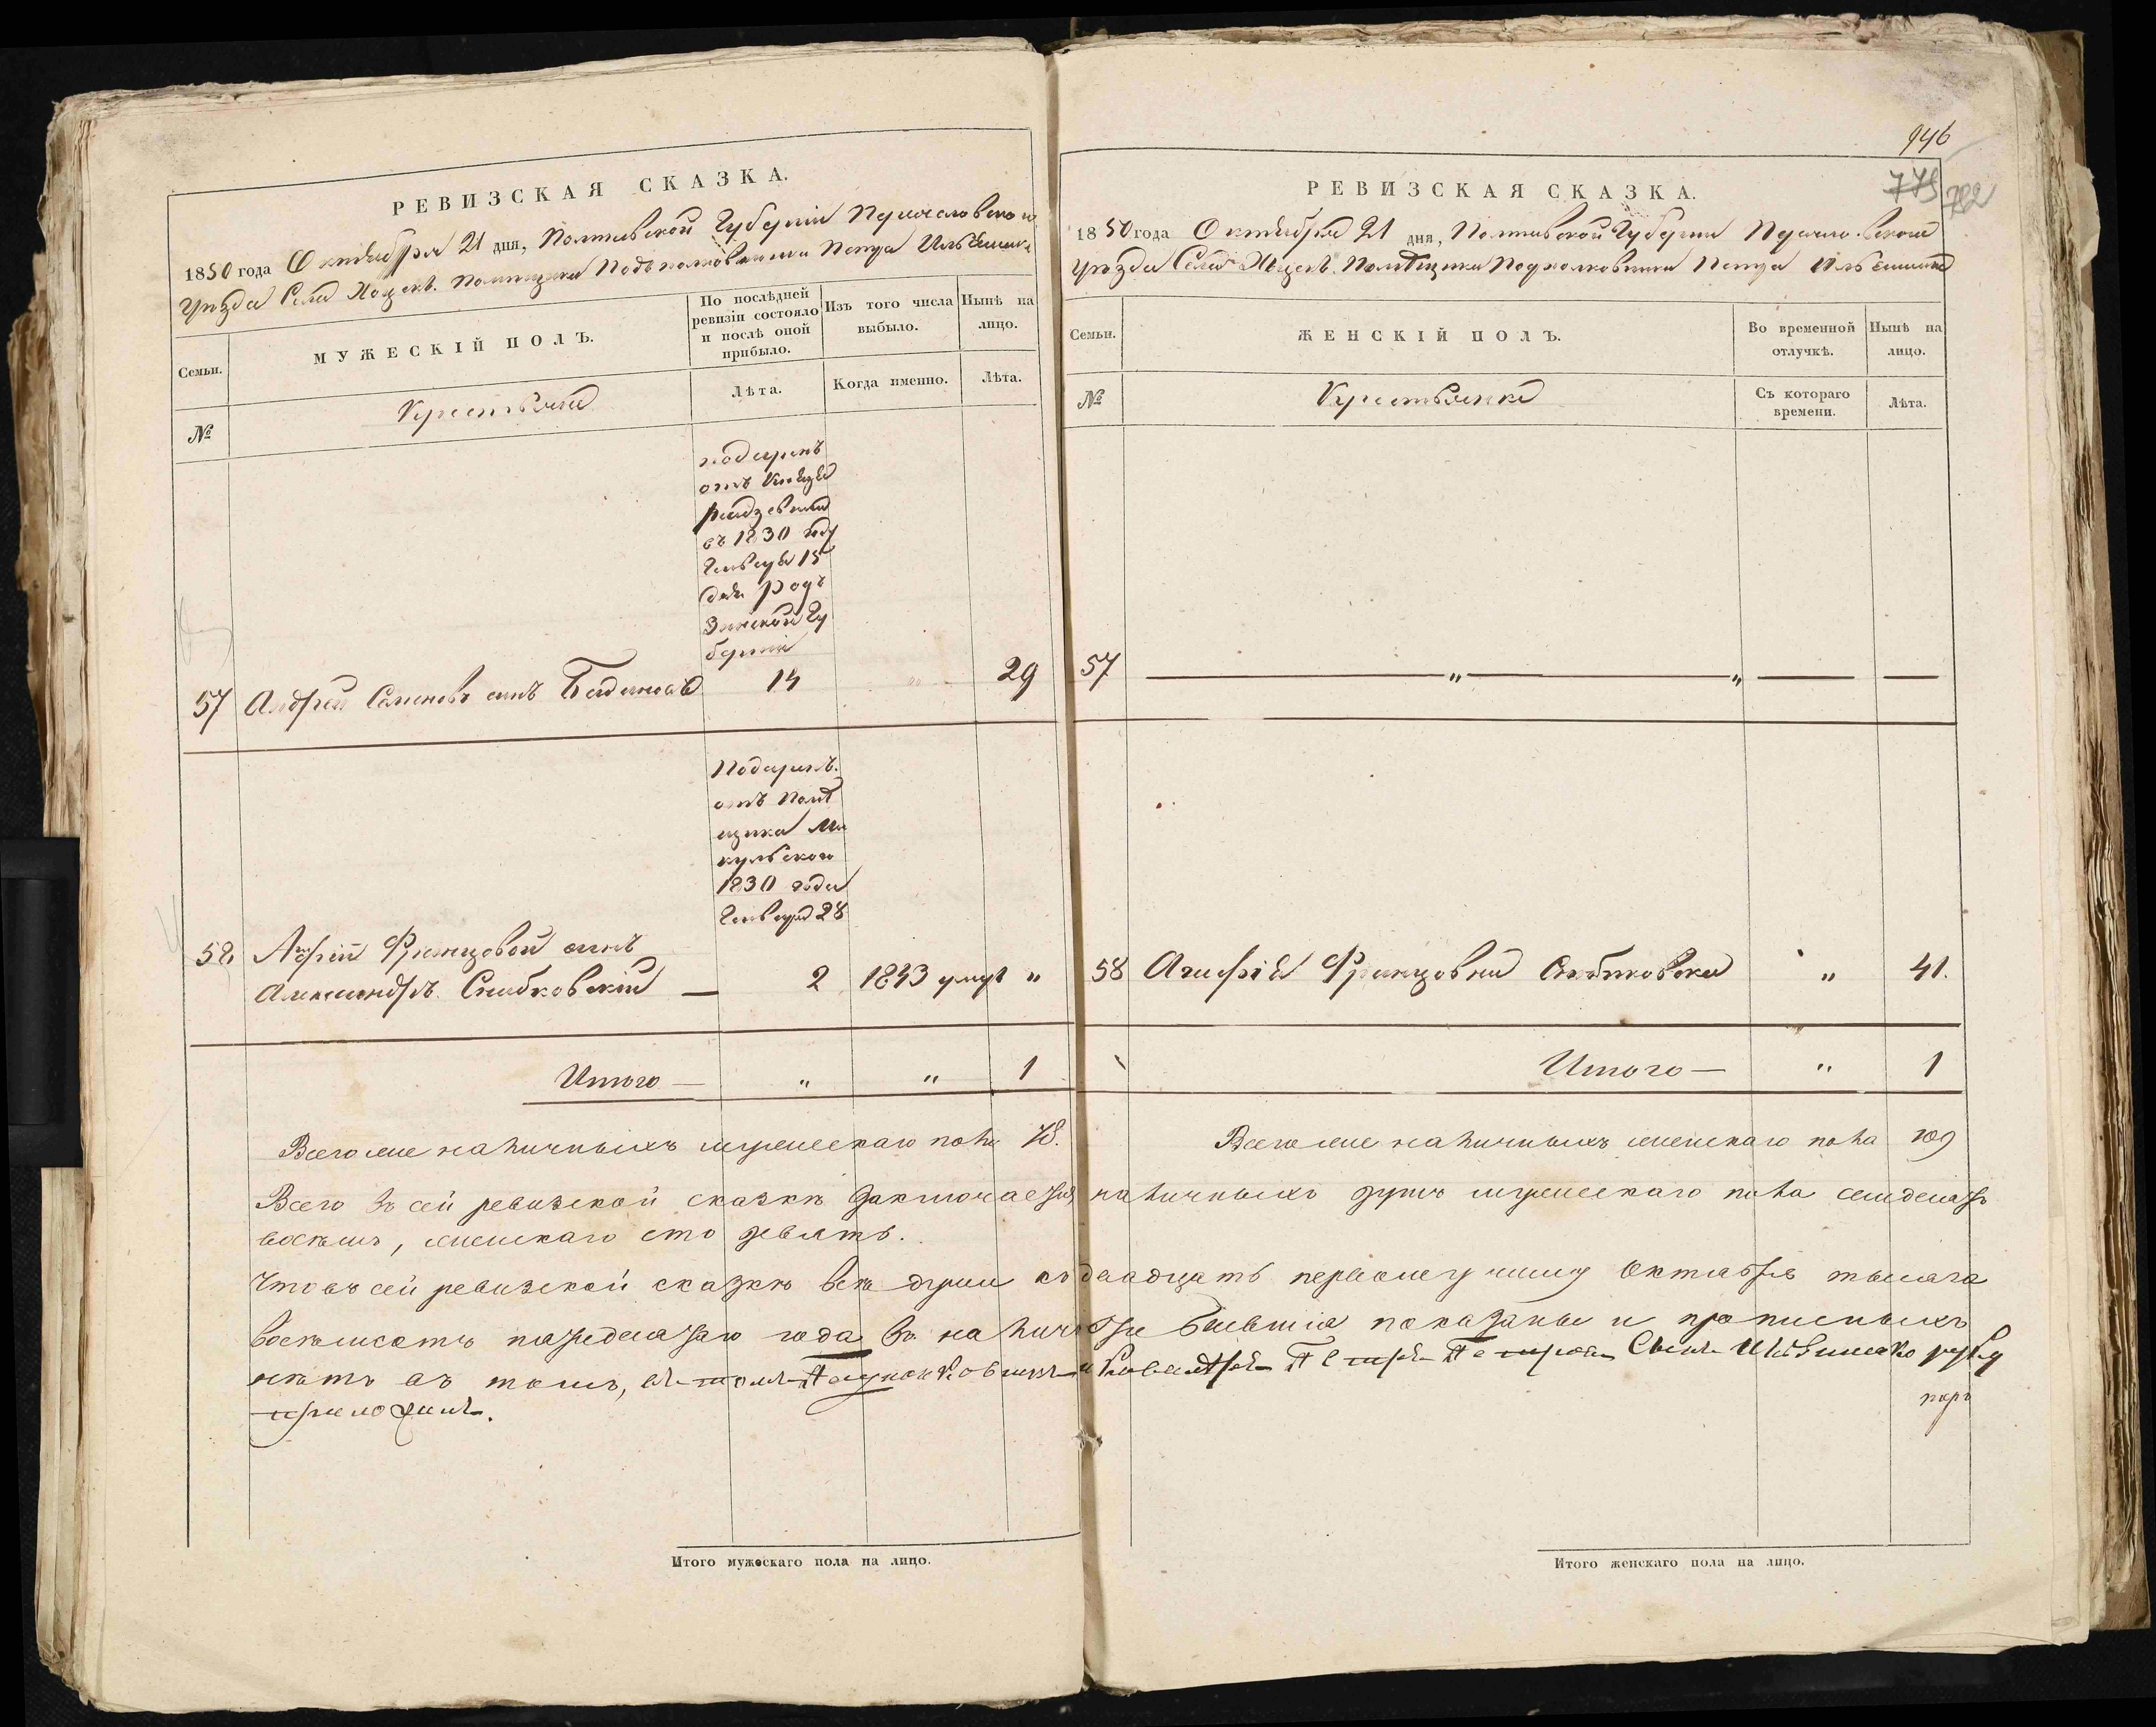 РЕВИЗСКАЯ СКАЗКА.
1850 года Октября 21 дня, Полтавской Губернии
уезда Села Помещика Подполковника Петра
Семьи.
МУЖЕСКІЙ ПОЛЪ.
По послѣдней ревизіи состояло и послѣ оной прибыло.
Изъ того числа выбыло.
Нынѣ на лицо.
№
Крестьяне
Лѣта.
Когда именно.
Лѣта.
подаренъ
отъ Князя
въ 1830 году
Генваря 15
дня
Гу
берніи
57 Андрей Семеновъ сынъ 14 29
Подаренъ
отъ Помѣ
щика Ми
кульского
1830 года
Генваря 28
58 Францовой сынъ
Александръ — 2 1843 „
Итого — „ „ 1
Всего же наличныхъ мужескаго пола 78.
946
775 782
РЕВИЗСКАЯ СКАЗКА.
1850 года Октября 21 дня, Полтавской Губернии
уезда Села Помѣщика Подполковника Петра
Семьи.
ЖЕНСКІЙ ПОЛЪ.
Во временной отлучкѣ.
Нынѣ на лицо.
№
Крестьянки
Съ котораго времени.
Лѣта.
57 — „ — „ — —
58 Францовна „ 41.
Итого — „ 1
Всего же наличныхъ женскаго пола 109
Всего въ сей ревизской сказкѣ заключается наличныхъ душъ мужескаго пола семдесятъ
восемь, женскаго сто девять.
Что въ сей ревизской сказкѣ всѣ души по двадцать первому числу Октября тысяча
восемьсотъ пятьдесятаго года въ наличности бывшіе показаны и прописныхъ
нѣтъ въ томъ, Подполковникъ и Кавалеръ Петръ Петровъ Сынъ руку
приложилъ.
Итого мужескаго пола на лицо.
Итого женскаго пола на лицо.